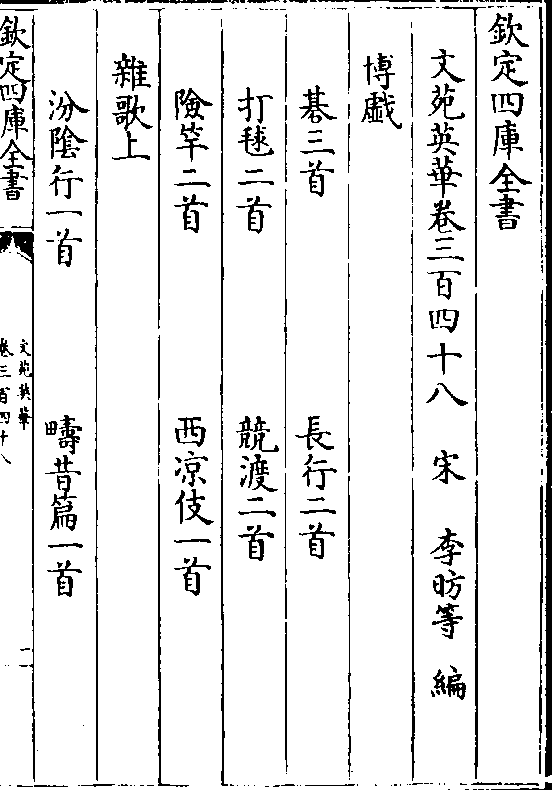 欽定四庫全書
文苑英華卷三百四十八 宋 李昉等 編
博戲
碁三首 長行二首
打毬二首 競渡二首
險竿二首 西凉伎一首
雜歌上
汾陰行一首 疇昔篇一首
欽定四庫全書
文苑英華
卷三百四十八